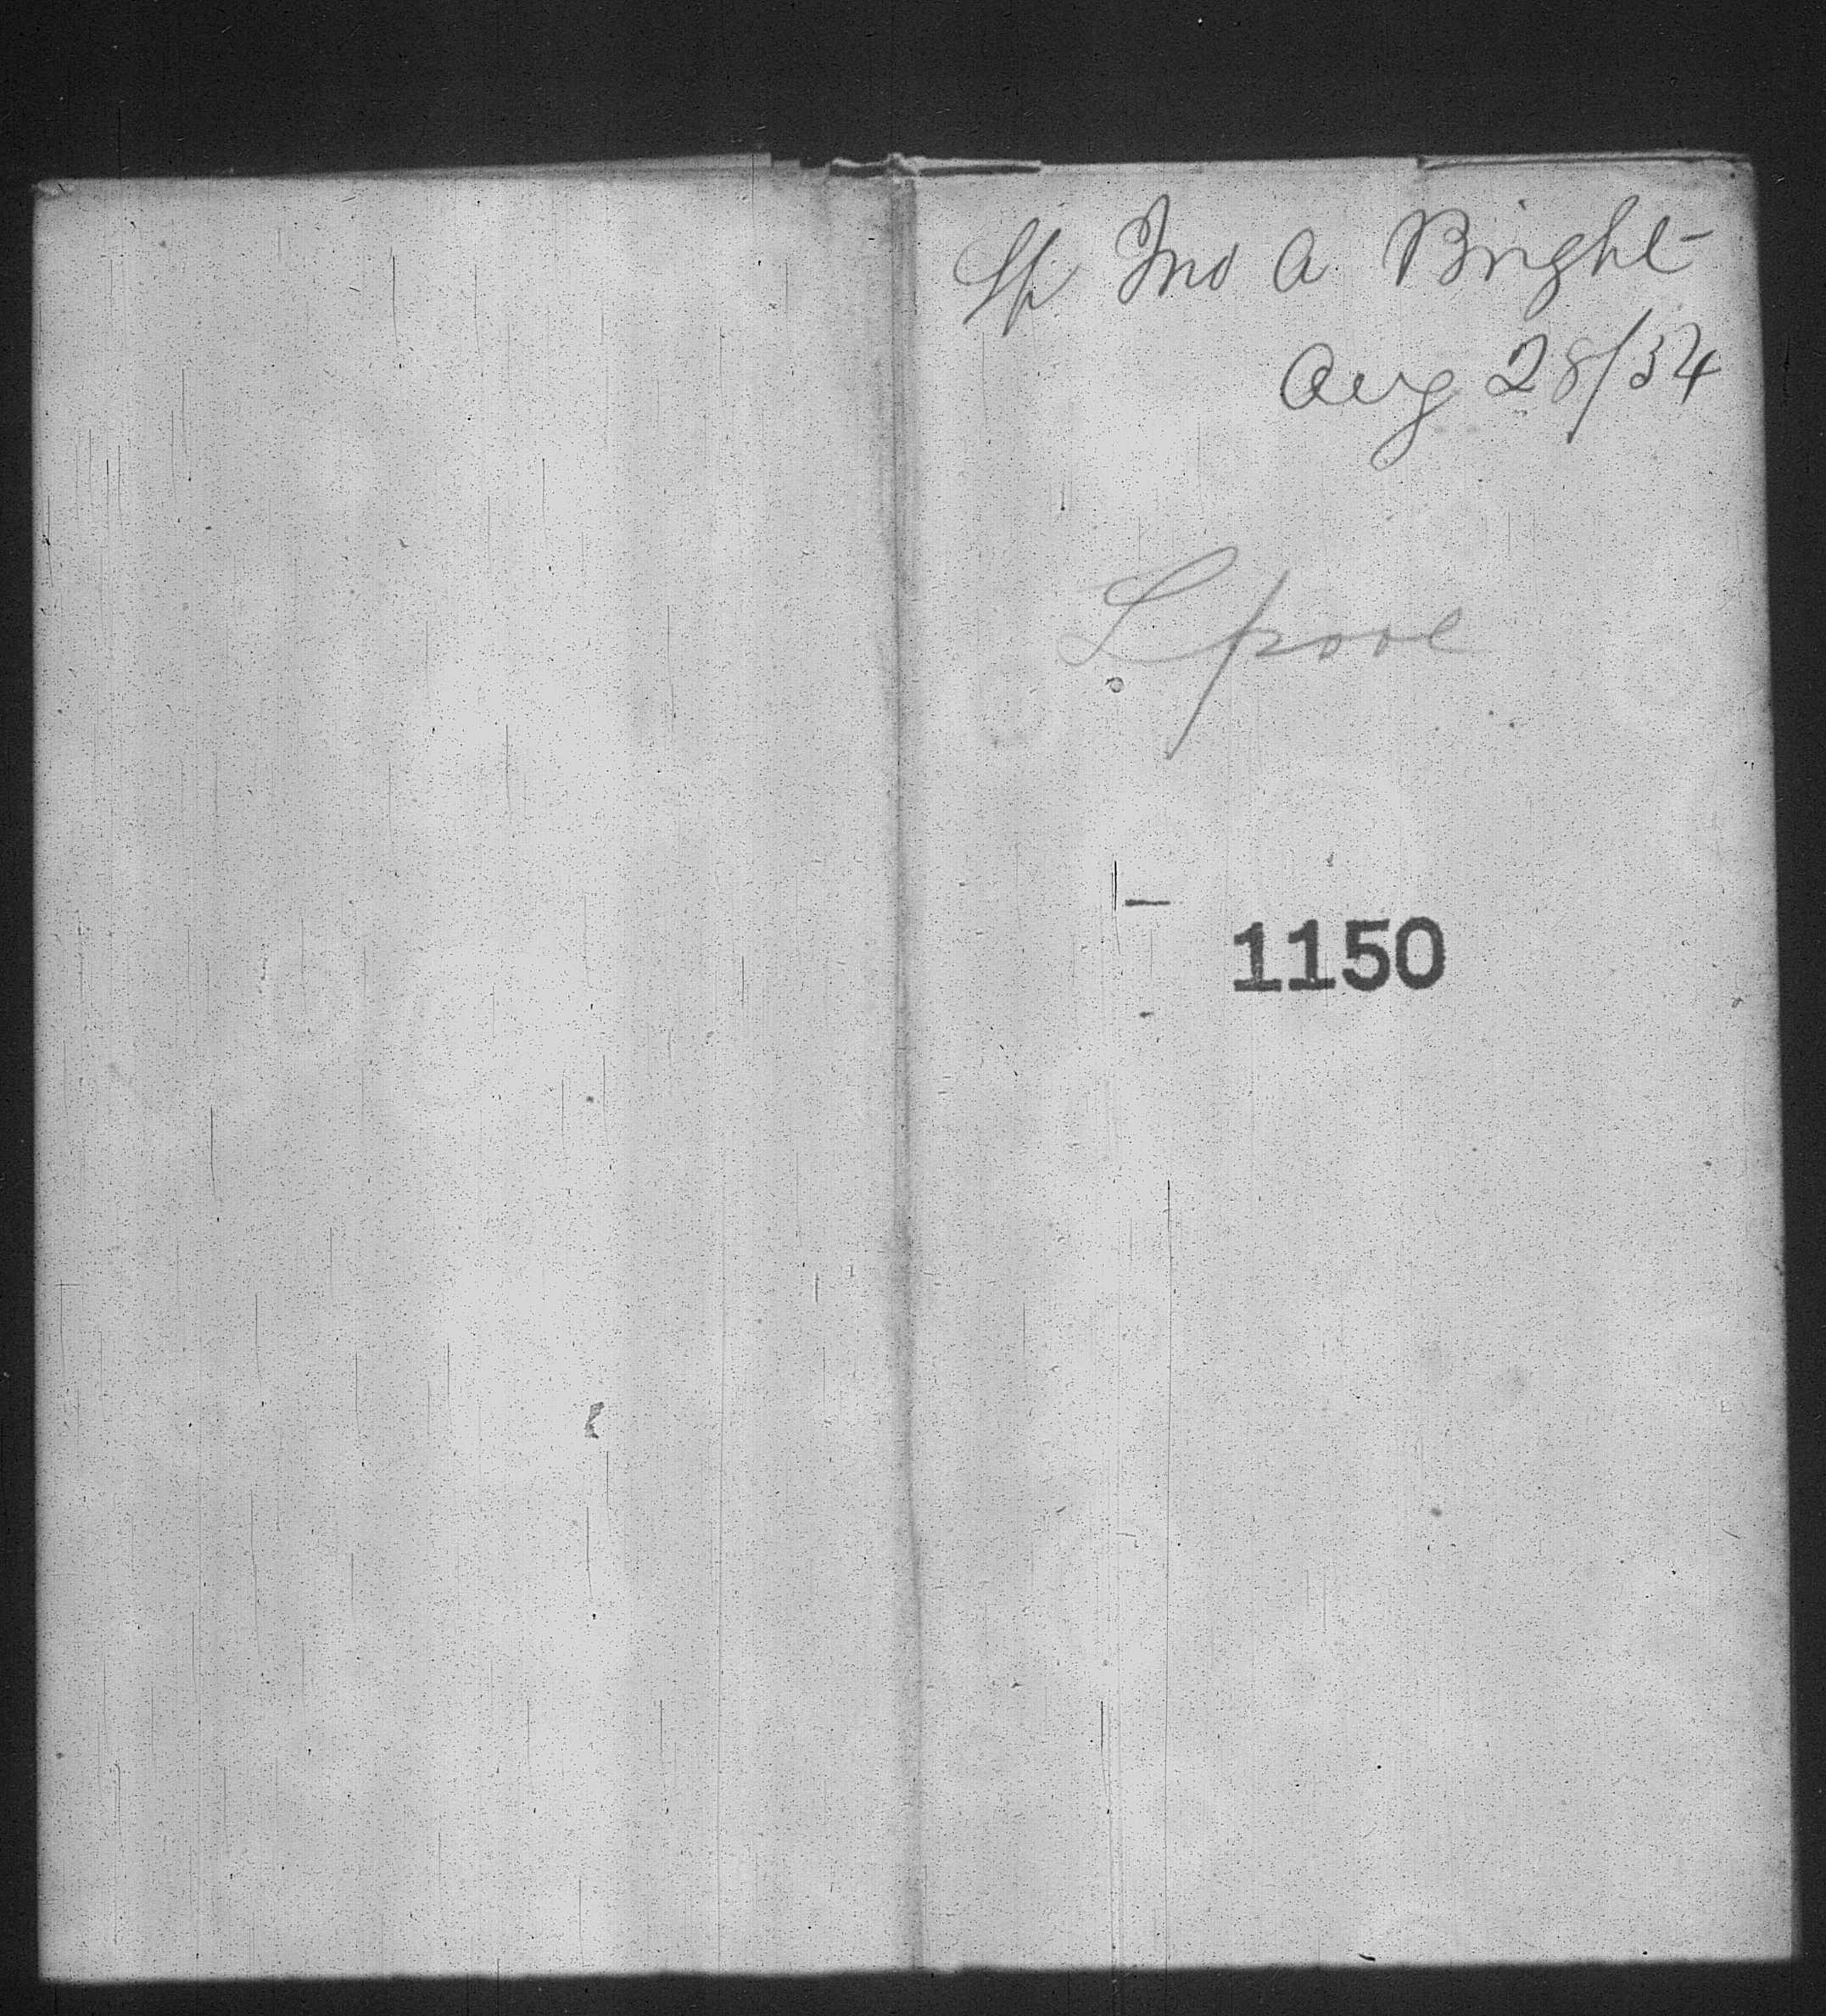 Sp Jno A Bright
Aug 28/54
Lpool
1150